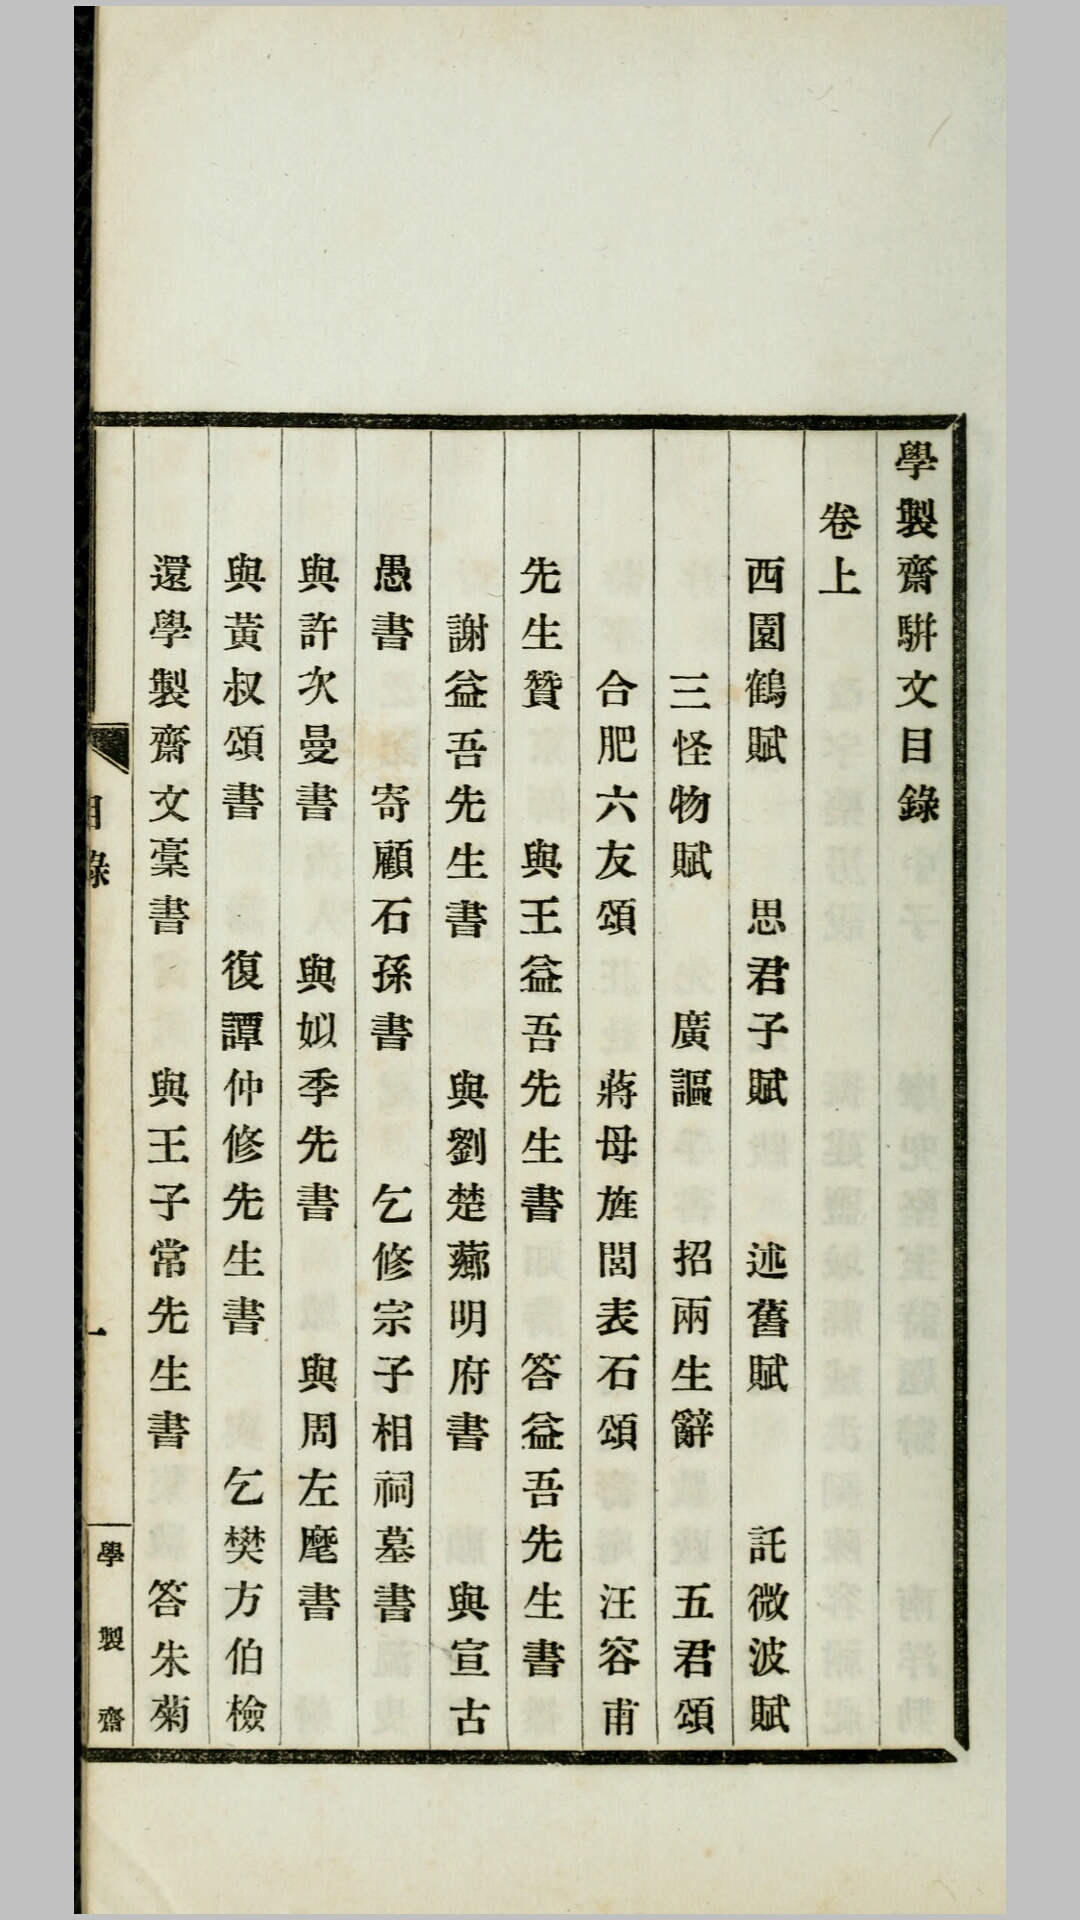 學製齋駢文目錄
卷上
西園鶴賦　思君子賦　述舊賦　託微波賦
三怪物賦　廣謳　招兩生辭　五君頌
合肥六友頌　蔣母旌閭表石頌　汪容甫
先生贊　與王益吾先生書　答益吾先生書
謝益吾先生書　與劉楚薌明府書　與宣古
愚書　寄顧石孫書　乞修宗子相祠墓書
與許次曼書　與姒季先書　與周左麾書
與黃叔頌書　復譚仲修先生書　乞樊方伯檢
還學製齋文稾書　與王子常先生書　答朱菊
目錄
一
學製齋